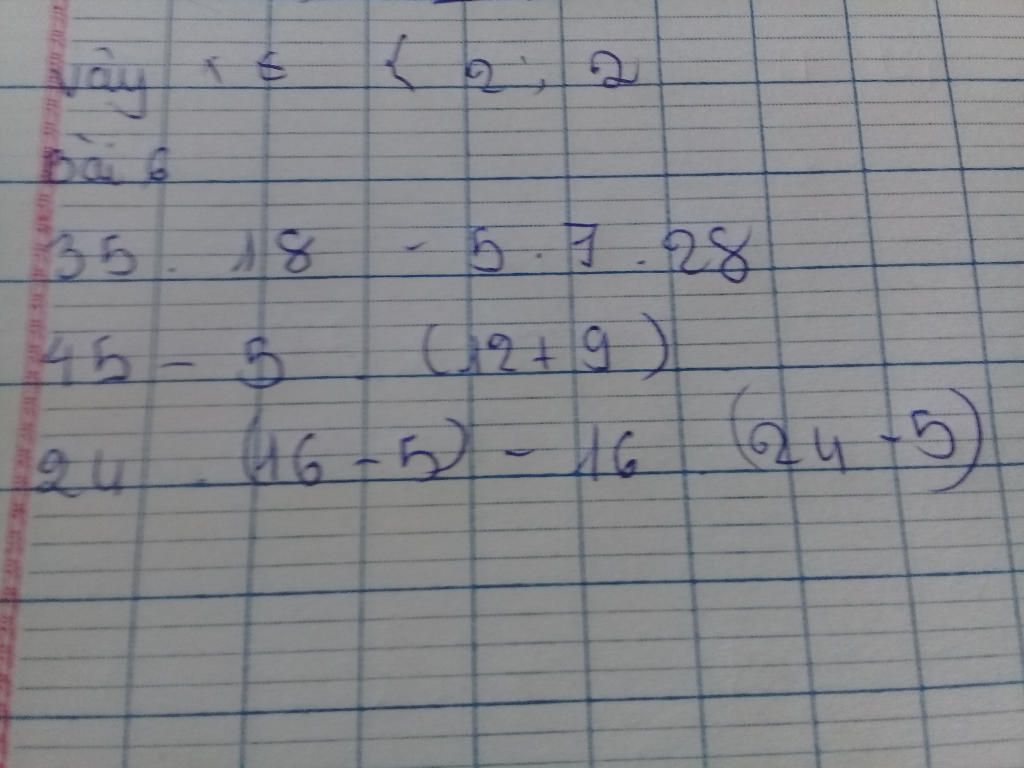 Vậy x ∈ { 2 ; 2
Bài 6
35 . 18 - 5 . 7 . 28
45 - 5 . (12 + 9)
24 . (16 - 5) - 16 . (24 - 5)